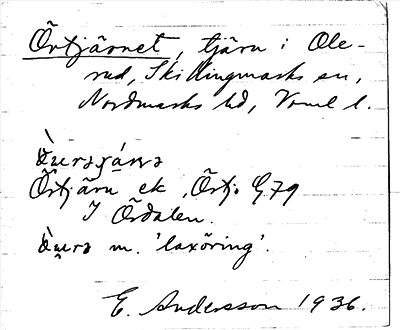 Örtjärnet, tjärn i Ole-
rud, Skillingmarks sn,
Nordmarks hd, Vrml l.
Örtjärn ek, Örtj. G.79
I Ördalen.
m. 'laxöring'.
E. Andersson 1936.